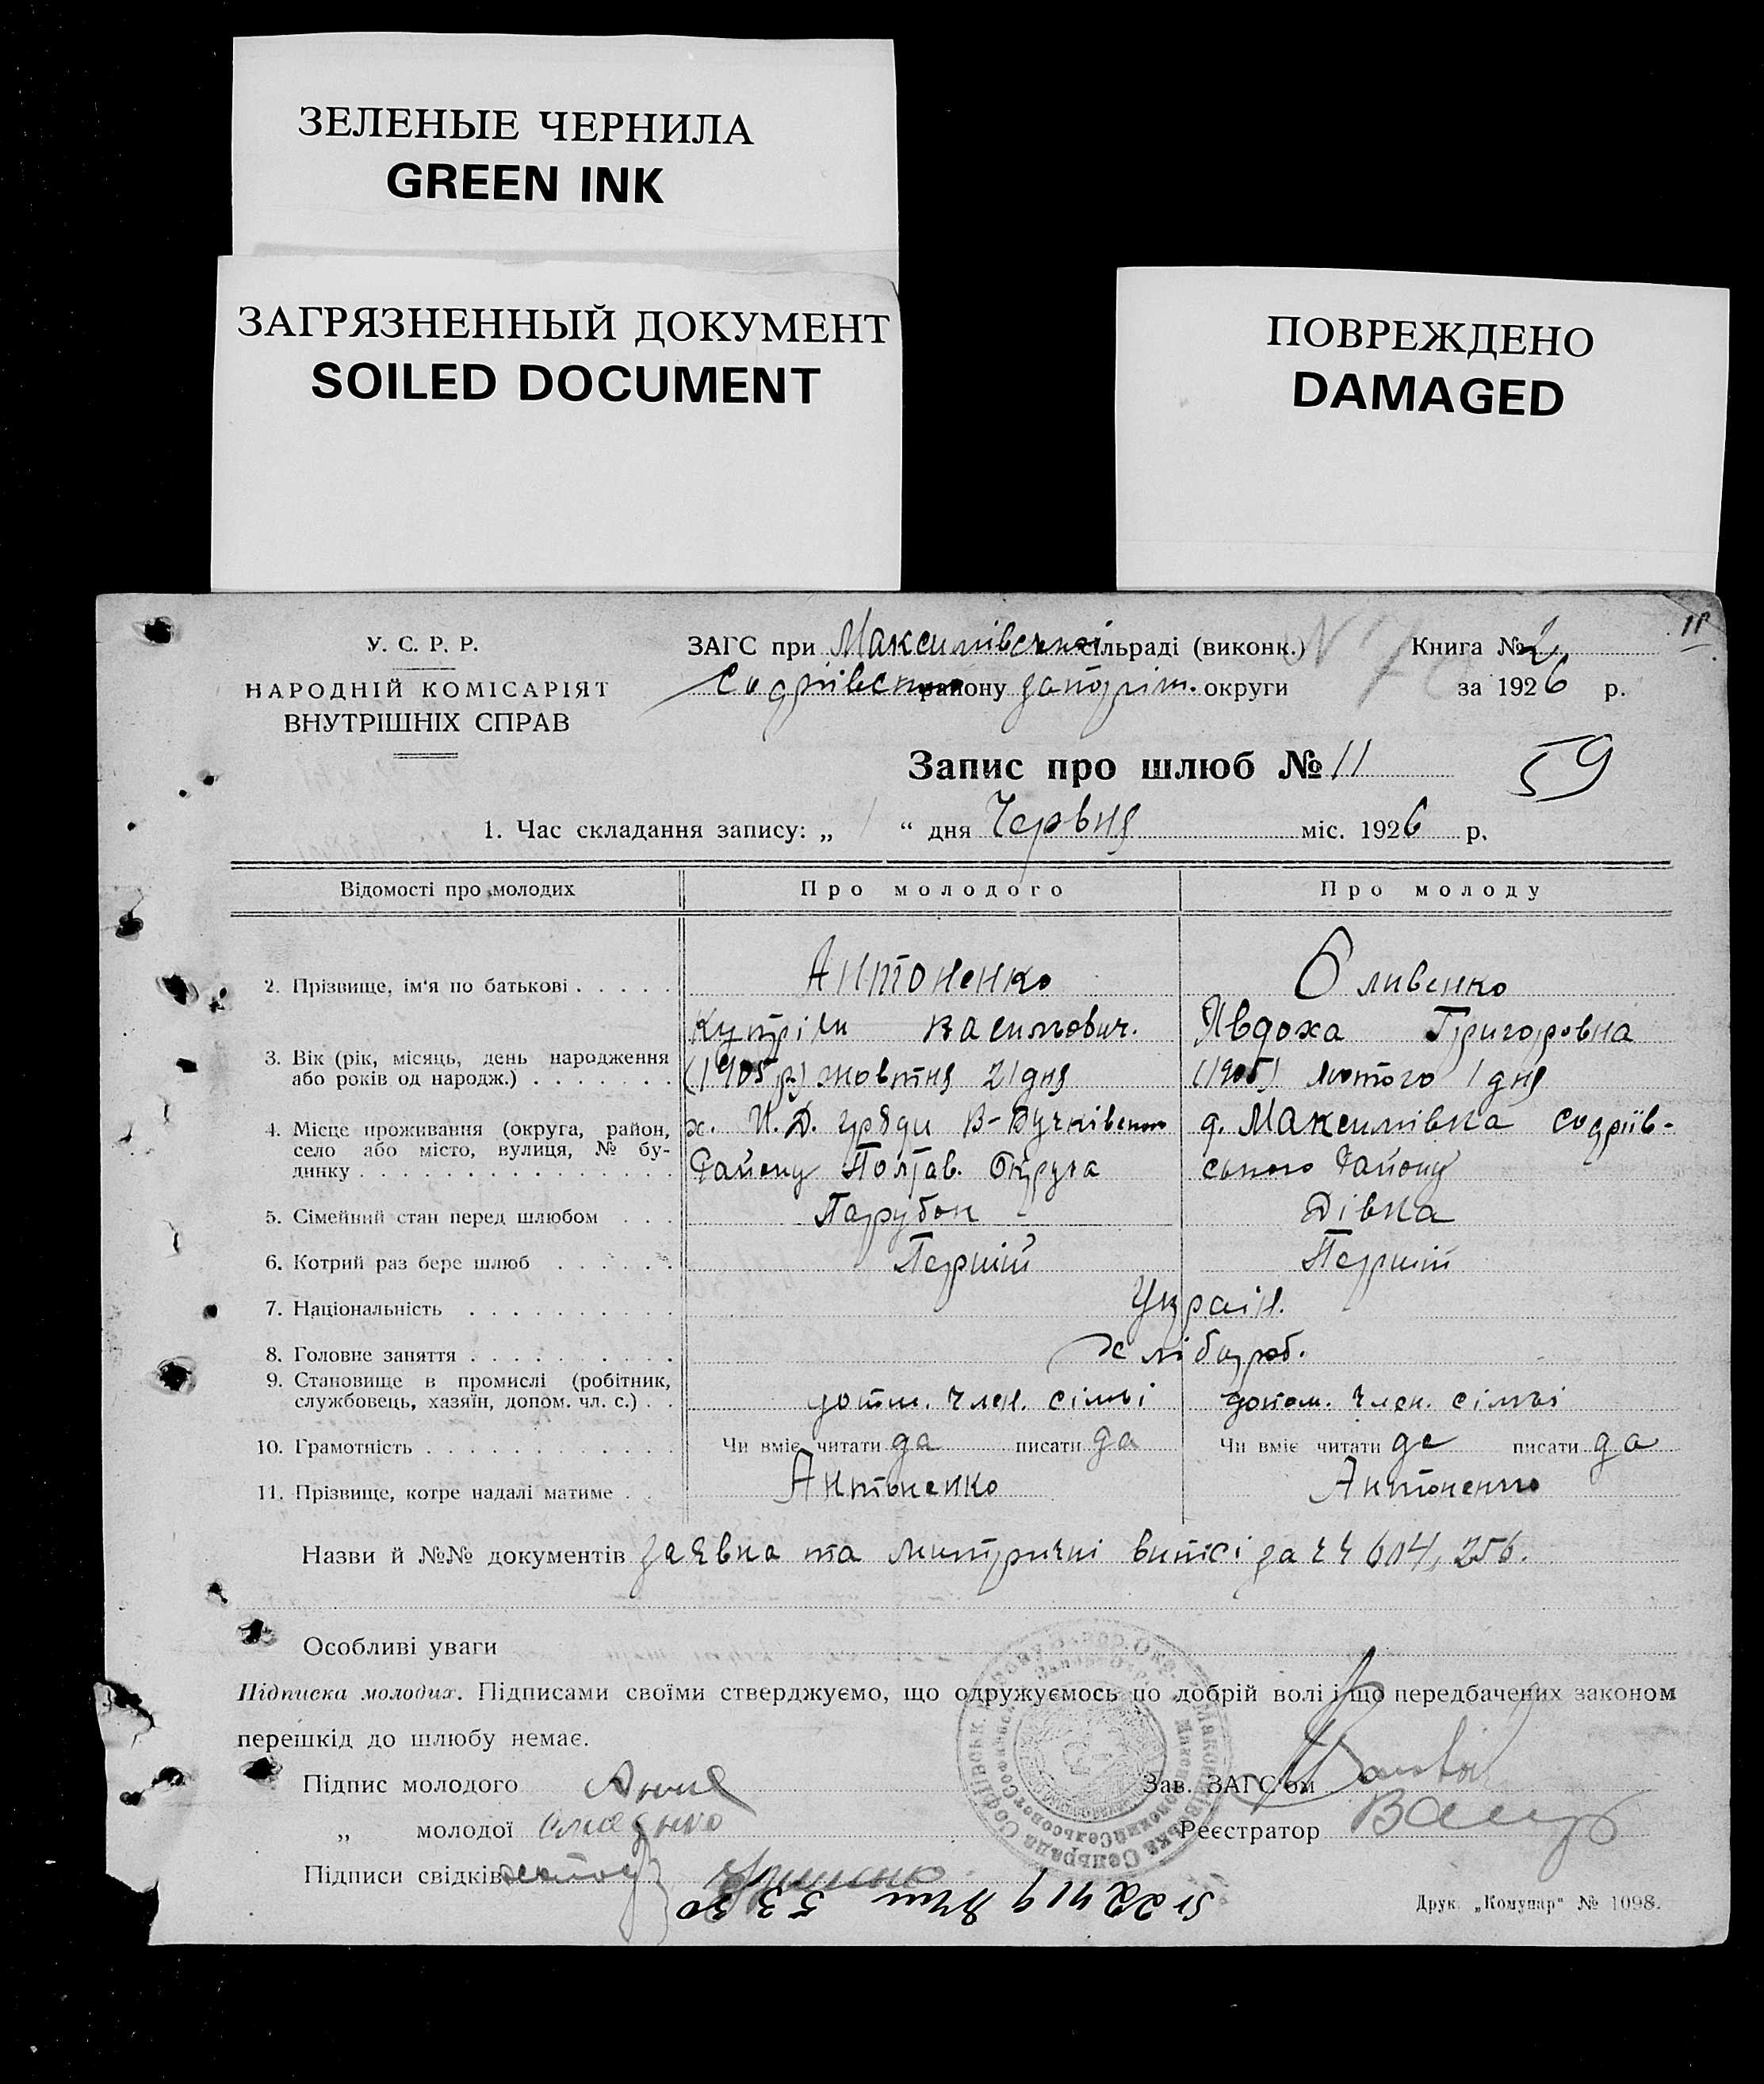 ЗЕЛЕНЫЕ ЧЕРНИЛА
GREEN INK
ЗАГРЯЗНЕННЫЙ ДОКУМЕНТ
SOILED DOCUMENT
ПОВРЕЖДЕНО
DAMAGED
11
У. С. Р. Р.
НАРОДНІЙ КОМІСАРІЯТ
ВНУТРІШНІХ СПРАВ
ЗАГС при Максимівській сільраді (виконк.) Книга № 2
району округи за 1926 р.
Запис про шлюб № 11 59
1. Час складання запису: „ 1 “ дня Червня міс. 1926 р.
Відомості про молодих Про молодого Про молоду
2. Прізвище, ім'я по батькові Антоненко Оливенко
Василович. Явдоха Григоровна
3. Вік (рік, місяць, день народження або років од народж.) (1905 р.) жовтня 21 дня (1905) лютого 1 дня
4. Місце проживання (округа, район, село або місто, вулиця, № будинку х. В- д. Максимівка
Району Полтав. Округа Району
5. Сімейний стан перед шлюбом Парубок Дівка
6. Котрий раз бере шлюб Перший Перший
7. Національність Україн.
8. Головне заняття хлібороб.
9. Становище в промислі (робітник, службовець, хазяїн, допом. чл. с.) допом. член. сімьі допом. член. сімьі
10. Грамотність Чи вміє читати да писати да Чи вміє читати да писати да
11. Прізвище, котре надалі матиме Антоненко Антоненко
Назви й №№ документів заявка та метричні виписі за чч 604, 256.
Особливі уваги
Підписка молодих. Підписами своїми стверджуємо, що одружуємось по добрій волі і що передбачених законом
перешкід до шлюбу немає.
Підпис молодого Зав. ЗАГС'ом
„ молодої Реєстратор
Підписи свідків
Друк. „Комунар“ № 1098.